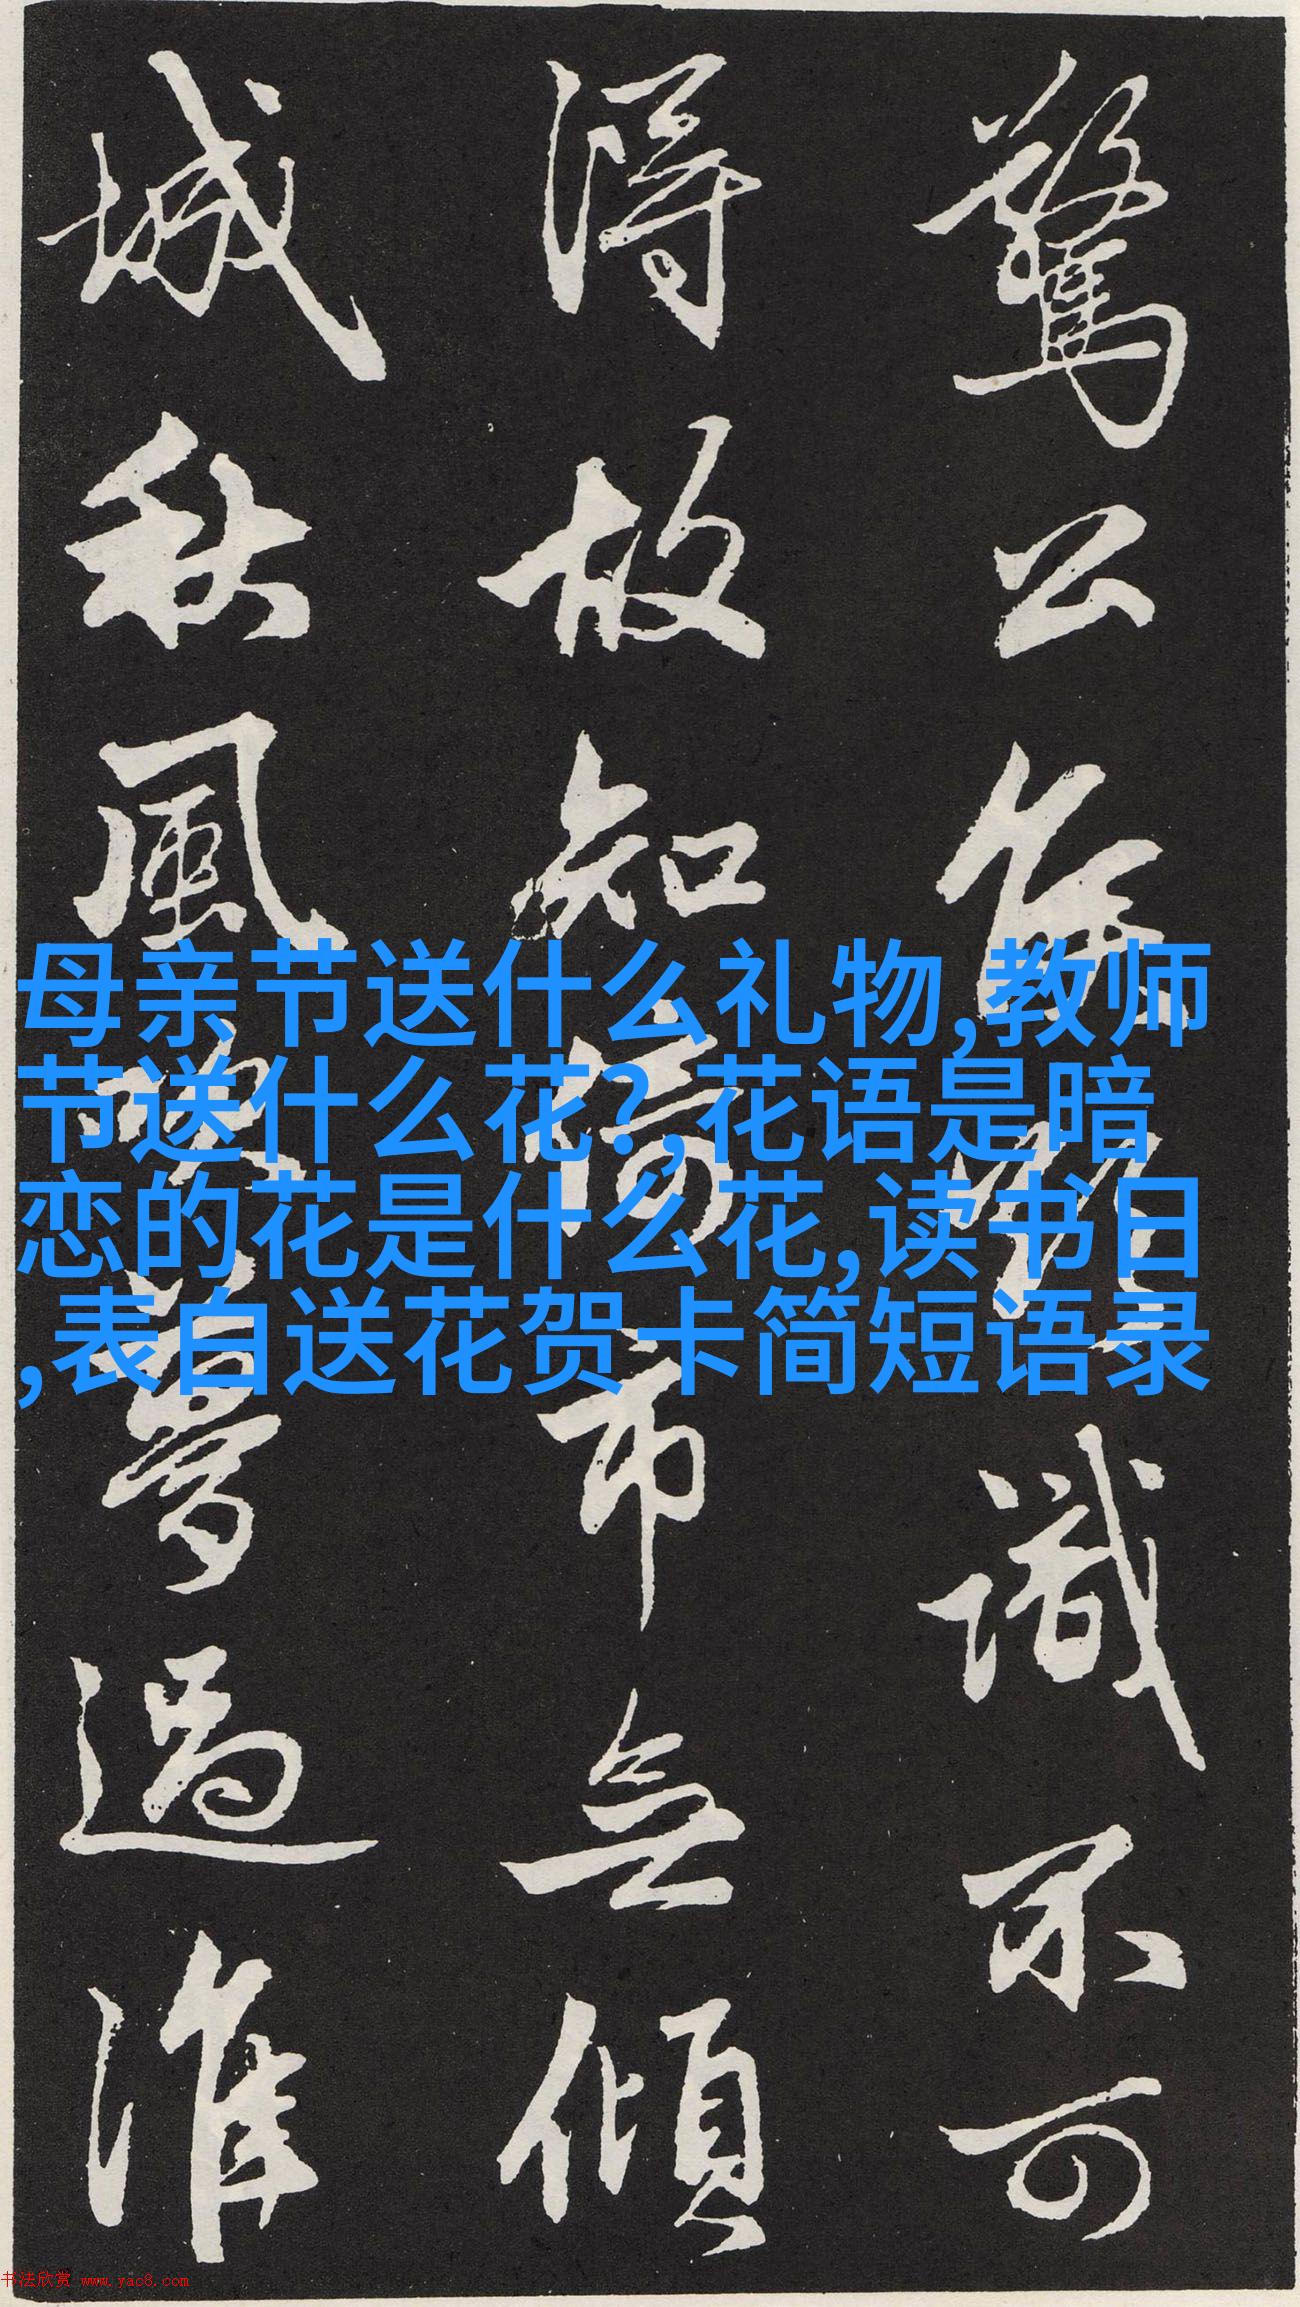 驚公識不可
得故知倚市無傾
城秋風夢過淮
母亲节送什么礼物,教师
节送什么花?,花语是暗
恋的花是什么花,读书日
,表白送花贺卡简短语录
书法欣赏 www.yac8.com